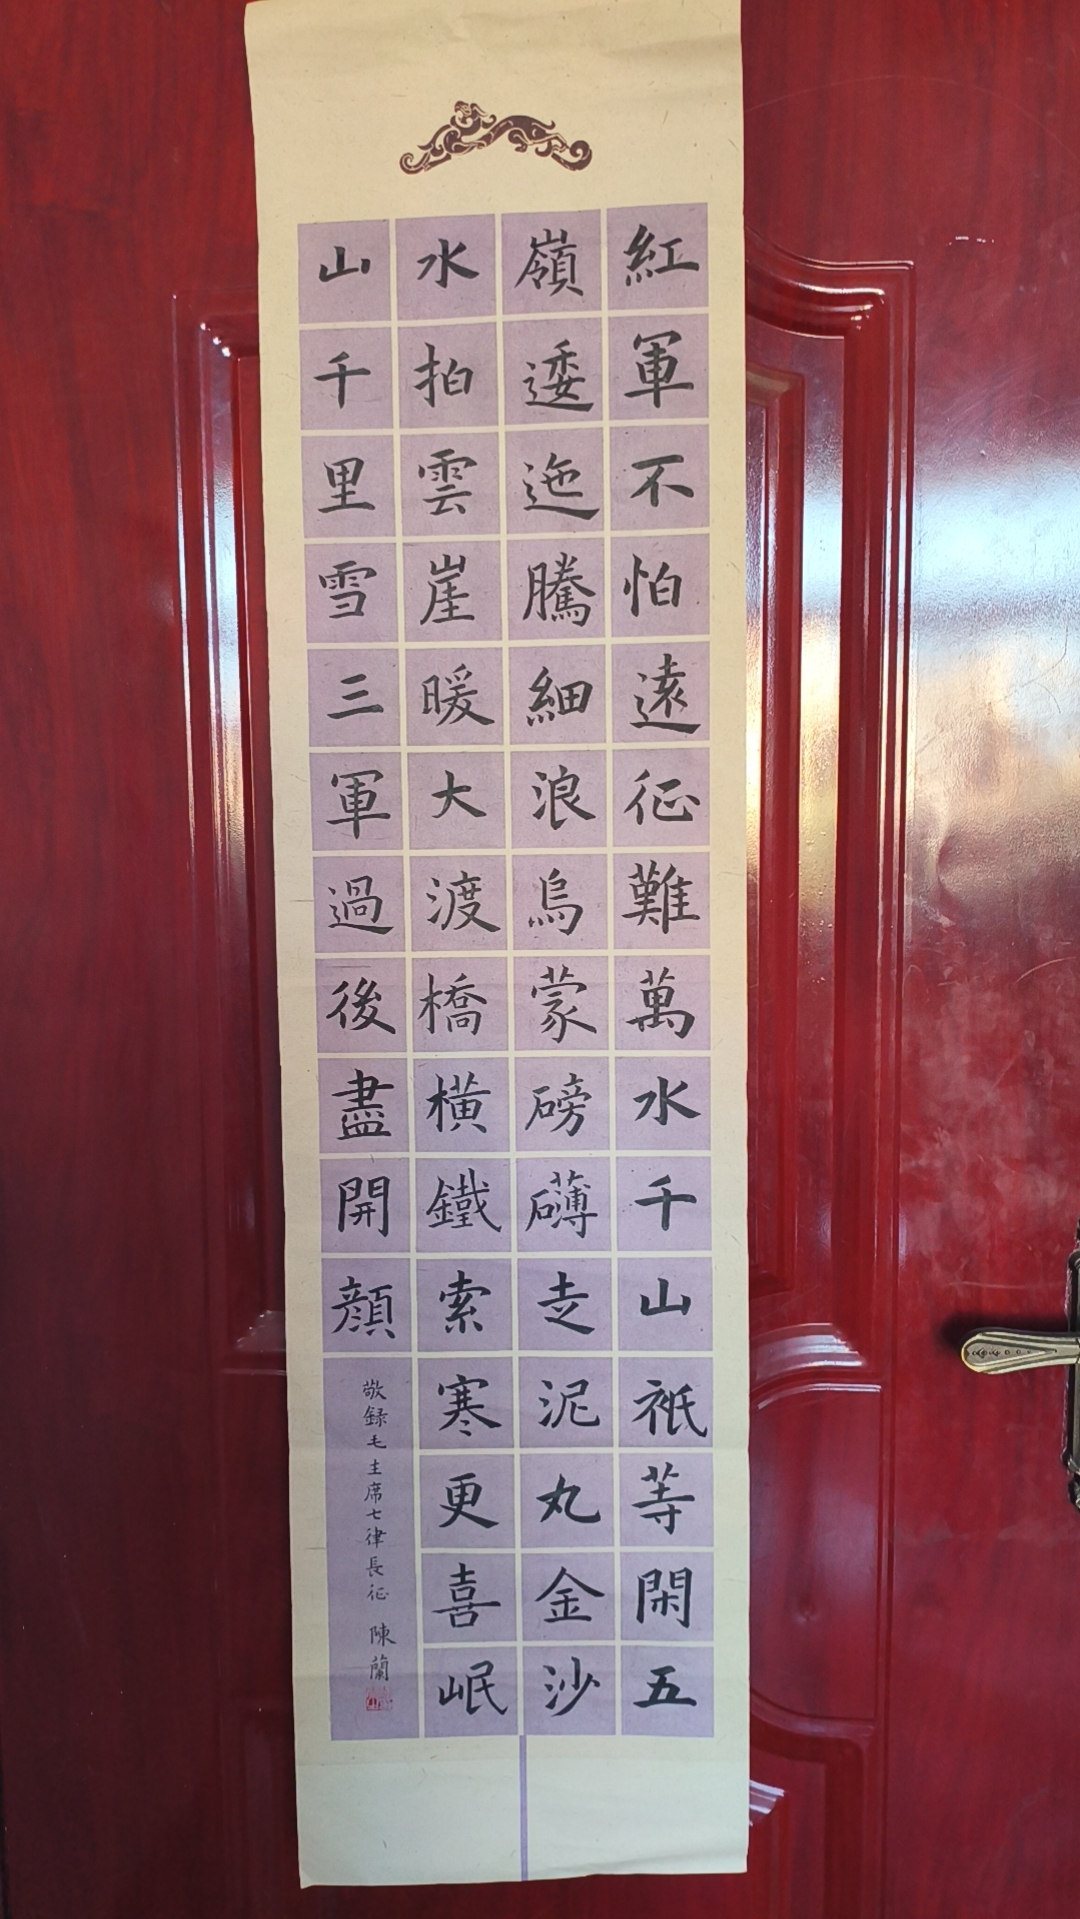 紅軍不怕遠征難萬水千山衹等閑五
嶺逶迤騰細浪烏蒙磅礴走泥丸金沙
水拍雲崖暖大渡橋橫鐵索寒更喜岷
山千里雪三軍過後盡開顏
敬録毛主席七律長征 陳蘭